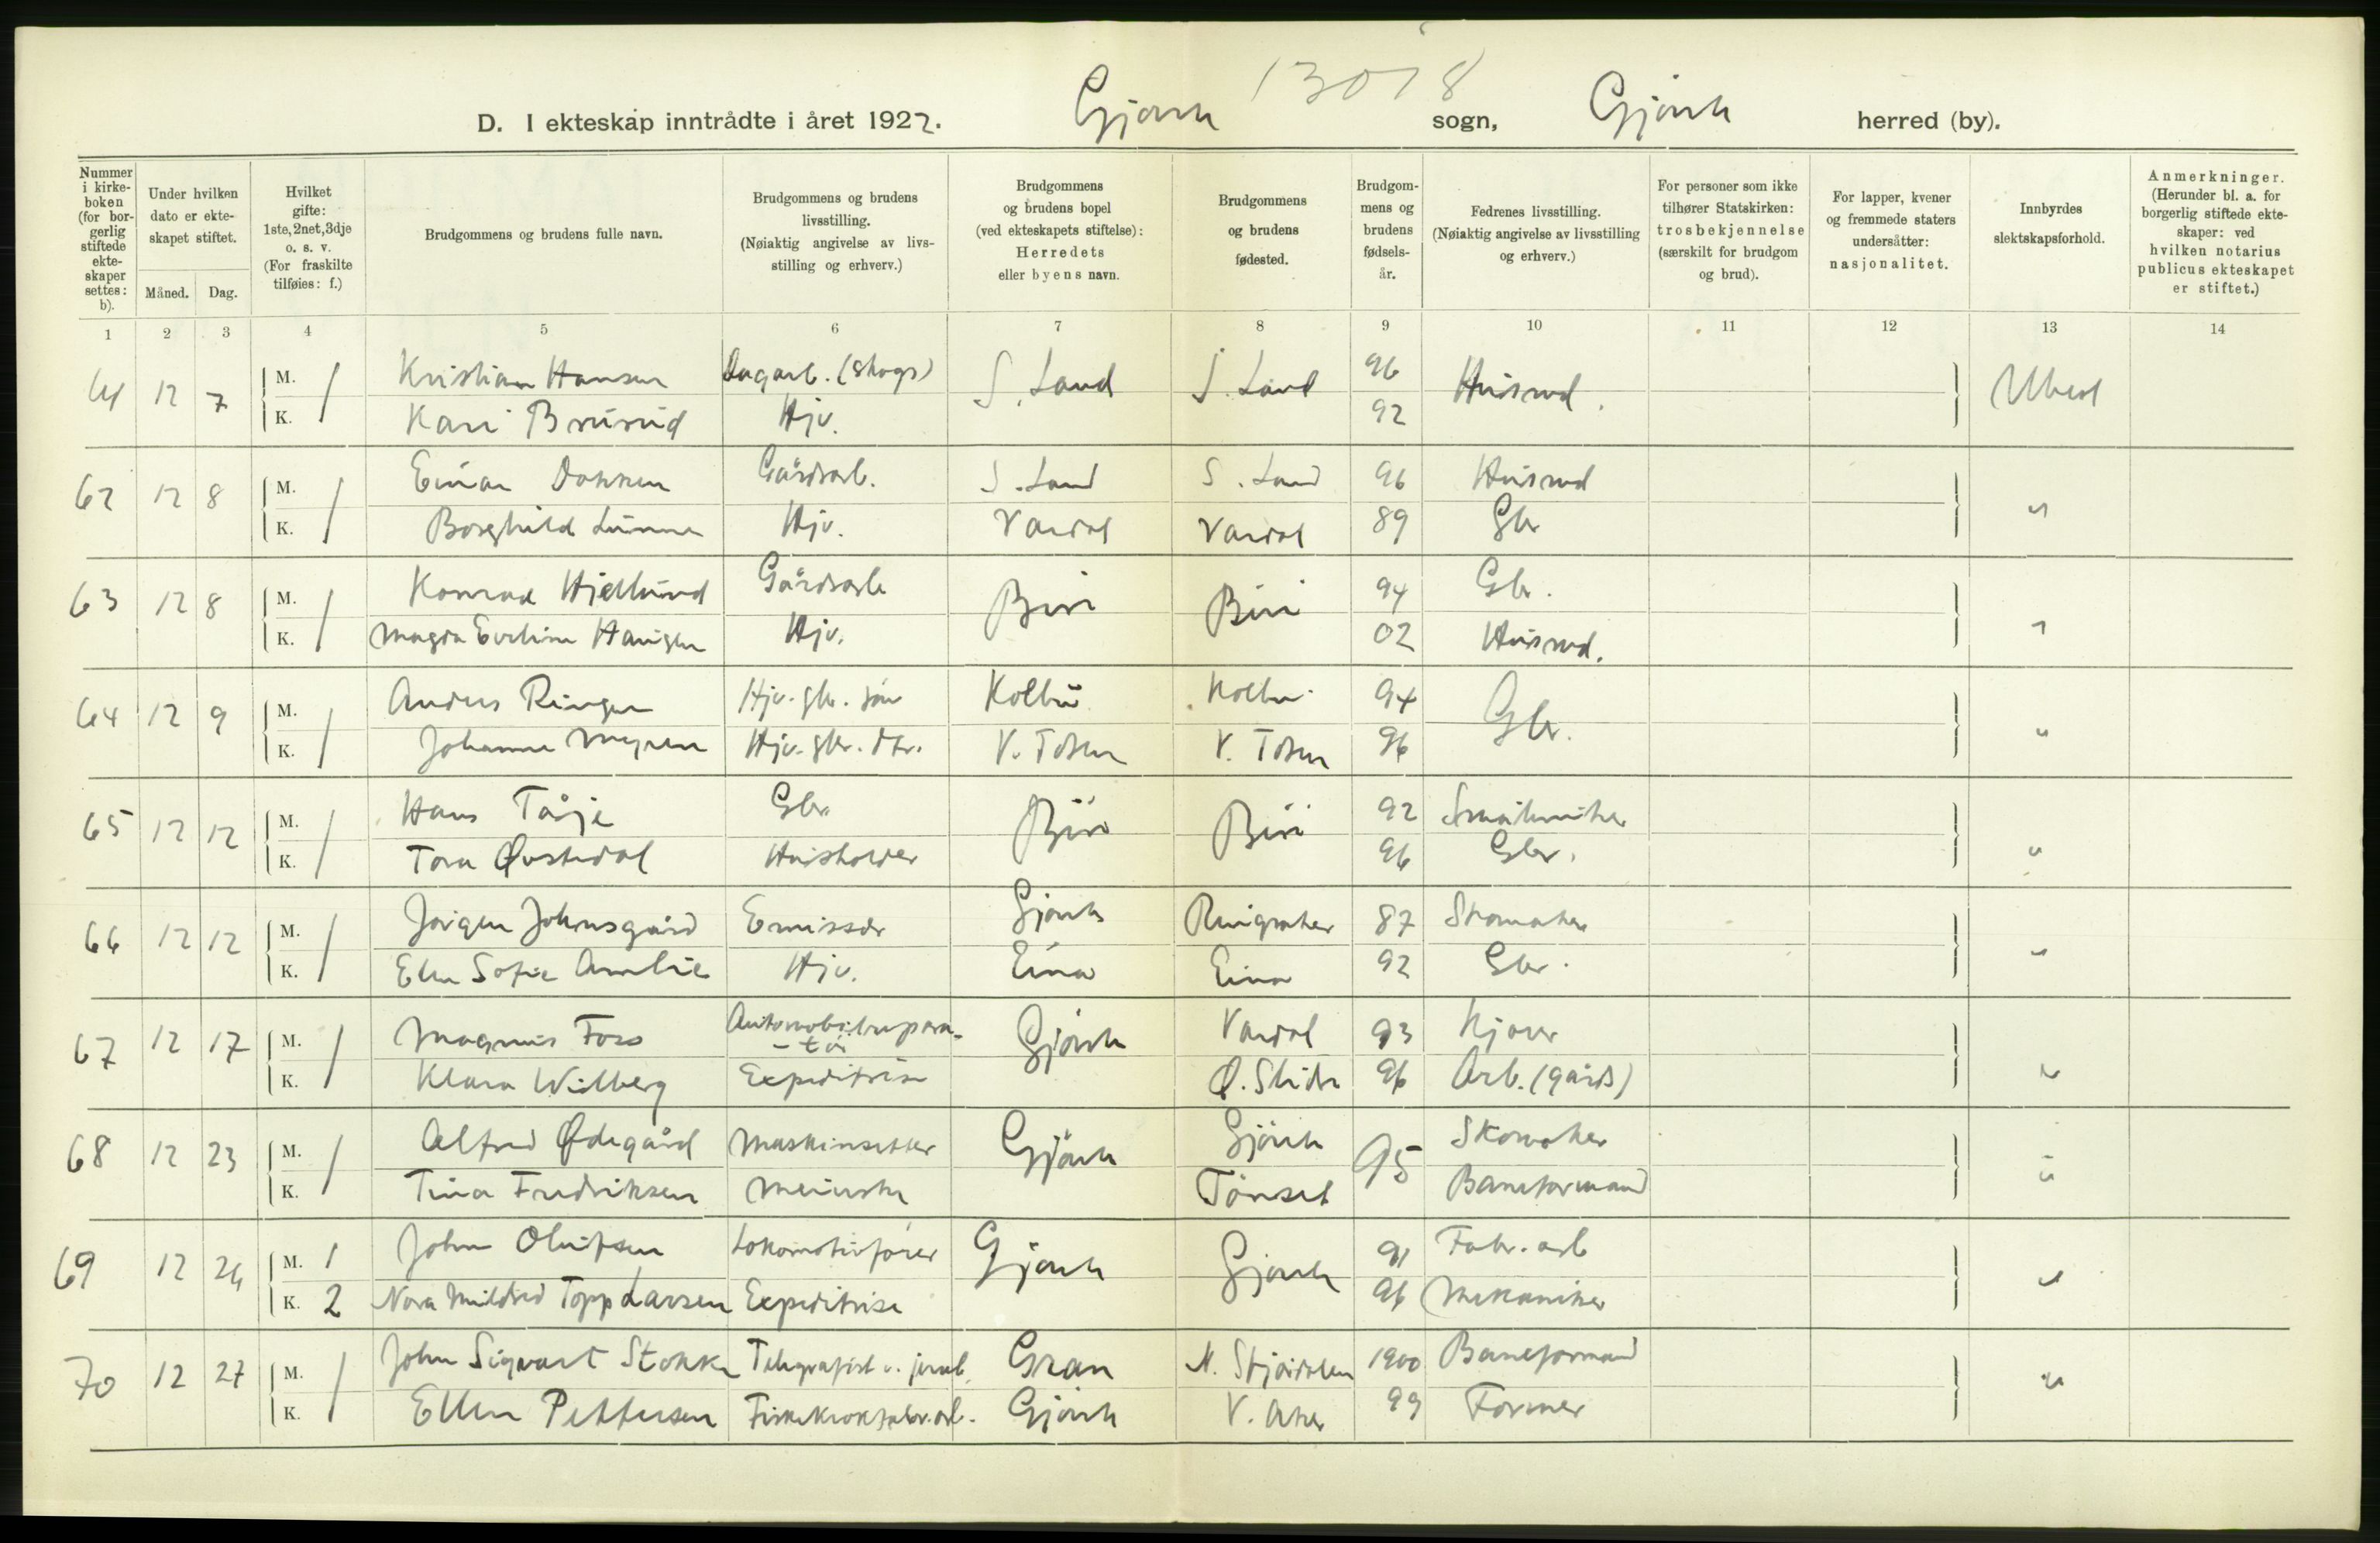 13018
D. I ekteskap inntrådte i året 1922. Gjøvik sogn, Gjøvik herred (by).
Nummer i kirke-boken (for bor-gerlig stiftede ekte-skaper settes: b).
Under hvilken dato er ekte-skapet stiftet.
Måned. Dag.
Hvilket gifte: 1ste, 2net, 3dje o. s. v. (For fraskilte tilføies: f.)
Brudgommens og brudens fulle navn.
Brudgommens og brudens livsstilling. (Nøiaktig angivelse av livs-stilling og erhverv.)
Brudgommens og brudens bopel (ved ekteskapets stiftelse): Herredets eller byens navn.
Brudgommens og brudens fødested.
Brudgom-mens og brudens fødsels-år.
Fedrenes livsstilling. (Nøiaktig angivelse av livsstilling og erhverv.)
For personer som ikke tilhører Statskirken: trosbekjennelse (særskilt for brudgom og brud).
For lapper, kvener og fremmede staters undersåtter: nasjonalitet.
Innbyrdes slektskapsforhold.
Anmerkninger. (Herunder bl. a. for borgerlig stiftede ekte-skaper: ved hvilken notarius publicus ekteskapet er stiftet.)
1 2 3 4 5 6 7 8 9 10 11 12 13 14
61 12 7 M. 1 Kristian Hansen Dagarb. (skogs) S. Land S. Land 96 Husmd. Ubesl
K. Kari Brusrud Hjv. 92
62 12 8 M. 1 Einar Dokken Gårdsarb. S. Land S. Land 96 Husmd "
K. Borghild Lunne Hjv. Vardal Vardal 89 Gbr
63 12 8 M. 1 Konrad Hjellund Gårdsarb Biri Biri 94 Gbr. "
K. Magda Eveline Haugen Hjv. 02 Husmd.
64 12 9 M. 1 Anders Ringen Hjv. gbr. søn Kolbu Kolbu 94 Gbr. "
K. Johanne Myren Hjv. gbr. dtr. V. Toten V. Toten 96
65 12 12 M. 1 Hans Tåje Gbr. Biri Biri 92 Småbruker "
K. Tora Øvstedal Husholder 96 Gbr.
66 12 12 M. 1 Jørgen Johnsgård Emissær Gjøvik Ringsaker 87 Skomaker "
K. Elen Sofie Amlie Hjv. Eina Eina 92 Gbr.
67 12 17 M. 1 Magnus Foss Automobilrepara-
-tør Gjøvik Vardal 93 Kjører "
K. Klara Wilberg Expeditrise Ø. Slidre 96 Arb. (gårds)
68 12 23 M. 1 Alfred Ødegård Maskinsetter Gjøvik Gjøvik 95 Skomaker "
K. Tina Fredriksen Meierske Tønset Baneformand
69 12 26 M. 1 John Olufsen Lokomotivfører Gjøvik Gjøvik 91 Fabr. arb "
K. 2 Nora Mildred Topp Larsen Expeditrise 96 Mekaniker
70 12 27 M. 1 John Sigvart Stokke Telegrafist v. jernb. Gran N. Stjørdalen 1900 Baneformand "
K. Ellen Pettersen Fiskekrokfabr. arb. Gjøvik V. Aker 99 Former